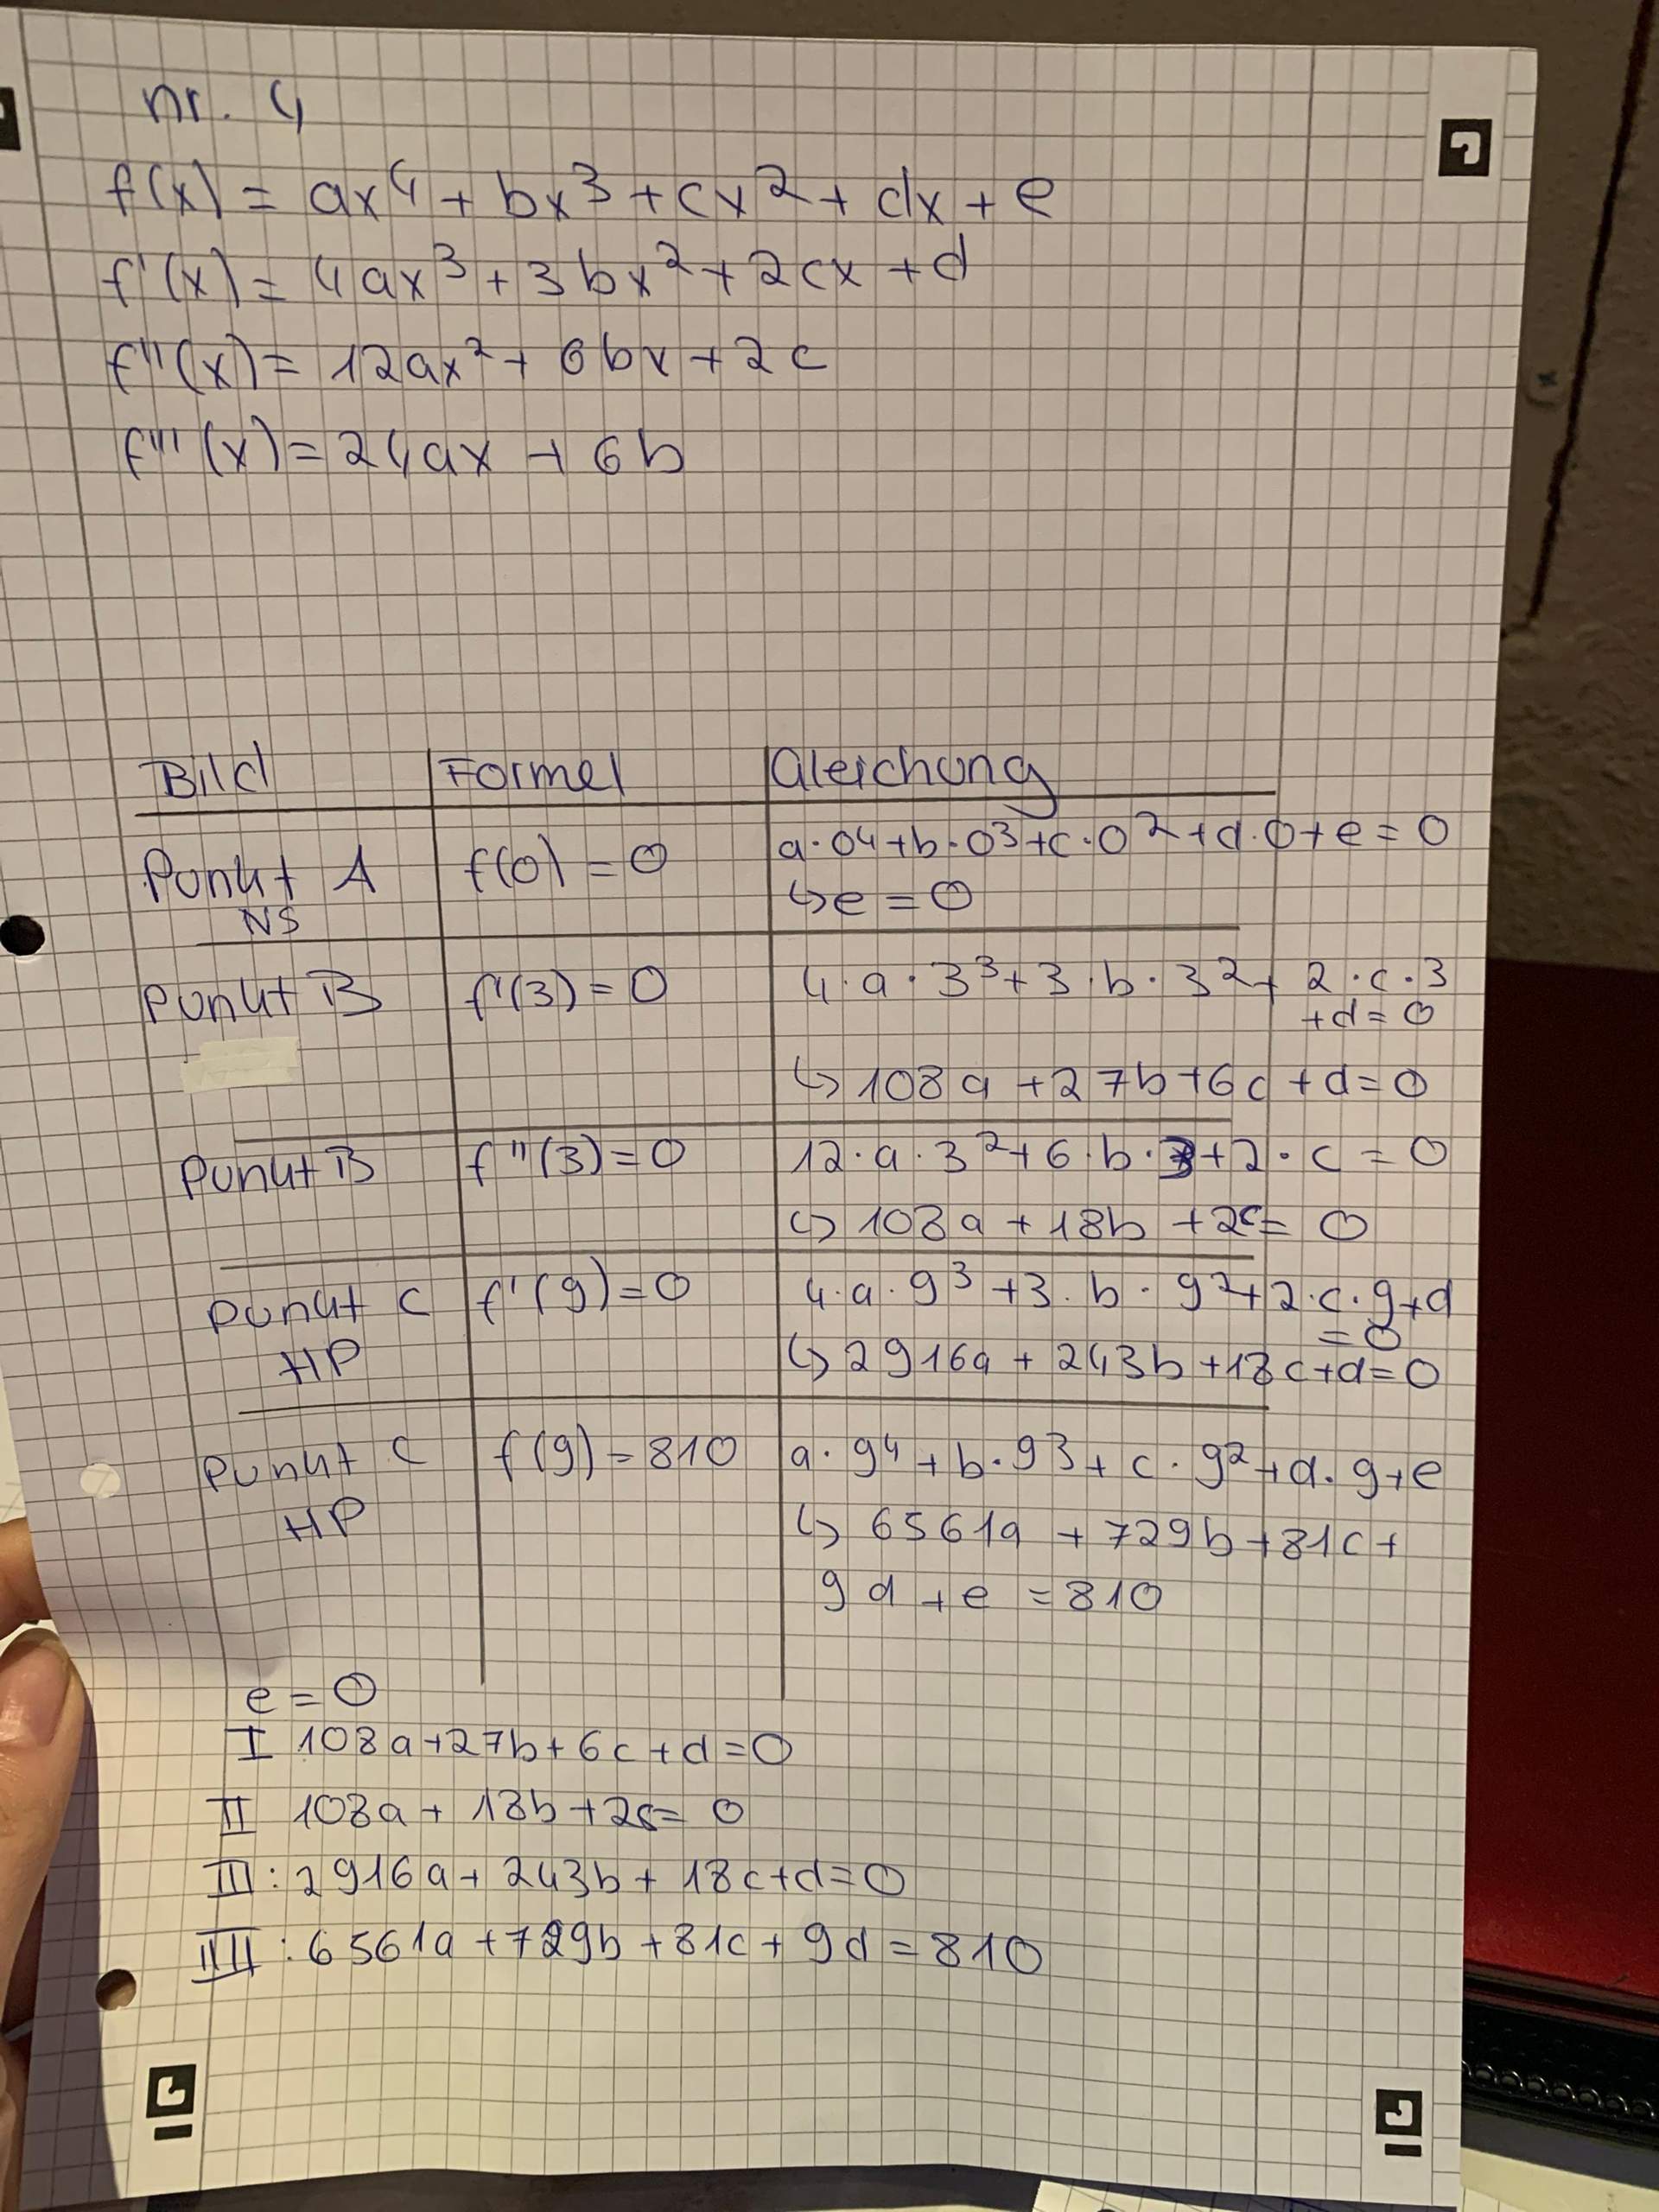 nr. 4
f(x) = ax⁴ + bx³ + cx² + dx + e
f'(x) = 4ax³ + 3bx² + 2cx + d
f''(x) = 12ax² + 6bx + 2c
f'''(x) = 24ax + 6b
Bild | Formel | Gleichung
Punkt A | f(0) = 0 | a·0⁴+b·0³+c·0²+d·0+e = 0
NS | | ↳ e = 0
Punkt B | f'(3) = 0 | 4·a·3³+3·b·3²+ 2·c·3
+d = 0
↳ 108a +27b+6c +d=0
Punkt B | f''(3) = 0 | 12·a·3²+6·b·3+2·c = 0
↳ 108a + 18b +2c= 0
Punkt C | f'(9)=0 | 4·a·9³+3·b·9²+2·c·9+d
= 0
HP | | ↳ 2916a + 243b +18c+d=0
Punkt C | f(9) = 810 | a·9⁴+b·9³+c·9²+d·9+e
HP | | ↳ 6561a + 729b+81c+
9d + e = 810
e = 0
I 108a+27b+6c+d=0
II 108a+ 18b+2c= 0
III: 2916a+ 243b+ 18c+d=0
IIII: 6561a +729b +81c+ 9d = 810